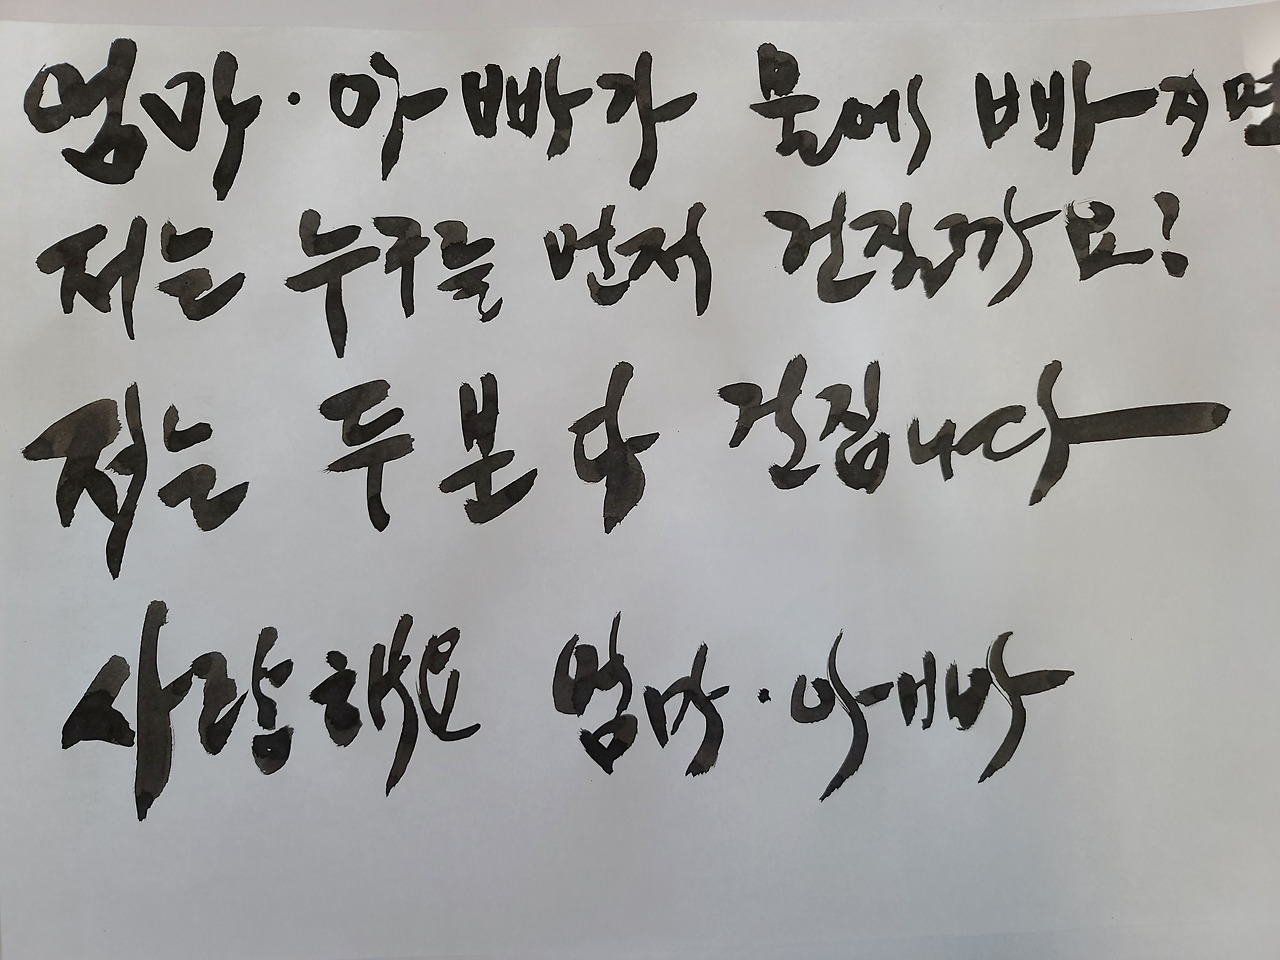 엄마·아빠가 물에 빠지면
저는 누구를 먼저 건질까요?
저는 두분 다 건집니다
사랑해요 엄마·아빠